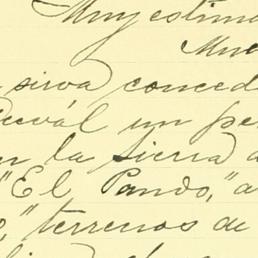 Muy estima
Muc
sirva conced
un pe
n la sierra d
"El Pando," a
" terrenos de